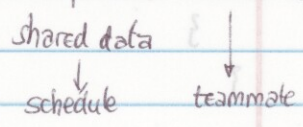 shared data
schedule teammate